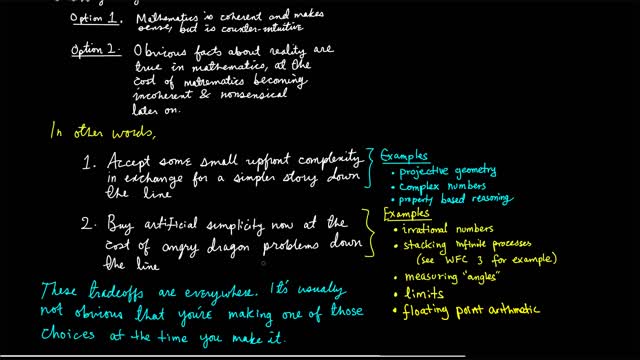 Option 1. Mathematics is coherent and makes
sense, but is counter-intuitive
Option 2. Obvious facts about reality are
true in mathematics, at the
cost of mathematics becoming
incoherent & nonsensical
later on.
In other words,
1. Accept some small upfront complexity
in exchange for a simpler story down
the line
Examples
• projective geometry
• complex numbers
• property based reasoning
2. Buy artificial simplicity now at the
cost of angry dragon problems down
the line
Examples
• irrational numbers
• stacking infinite processes
(see WFC 3 for example)
• measuring "angles"
• limits
• floating point arithmetic
These tradeoffs are everywhere. It's usually
not obvious that you're making one of those
choices at the time you make it.